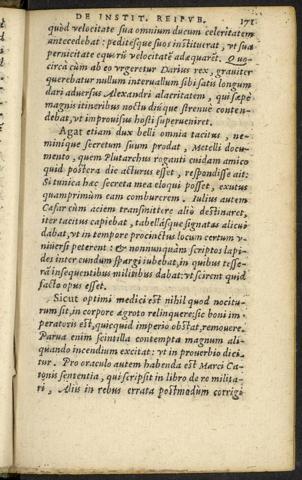 DE INSTIT. REIPVB. 171
quòd velocitate sua omnium ducum celeritatem
antecedebat: peditesque suos instituerat, vt sua
pernicitate equorū velocitatē adæquarēt. Quo-
circà cùm ab eo vrgeretur Darius rex, grauiter
querebatur nullum interuallum sibi satis longum
dari aduersus Alexandri alacritatem, qui sæpè
magnis itineribus noctu diuque strenuè conten-
debat, vt improuisus hosti superueniret.
Agat etiam dux belli omnia tacitus, ne-
minique secretum suum prodat, Metelli docu-
mento, quem Plutarchus roganti cuidam amico
quid postera die acturus esset, respondisse ait:
Si tunica hæc secreta mea eloqui posset, exutus
quamprimùm eam comburerem. Iulius autem
Cæsar cùm aciem transmittere aliò destinaret,
iter tacitus capiebat, tabellásque signatas alicui
dabat, vt in tempore procinctus locum certum v-
niuersi peterent: & nonnunquàm scriptos lapi-
des inter eundum spargi iubebat, in quibus tesse-
rā insequentibus militibus dabat: vt scirent quid
facto opus esset.
Sicut optimi medici est nihil quod nocitu-
rum sit, in corpore ægroto relinquere: sic boni im-
peratoris est, quicquid imperio obstat, remouere.
Parua enim scintilla contempta magnum ali-
quando incendium excitat: vt in prouerbio dici-
tur. Pro oraculo autem habenda est Marci Ca-
tonis sententia, qui scripsit in libro de re milita-
ri, Aliis in rebus errata postmodùm corrigi